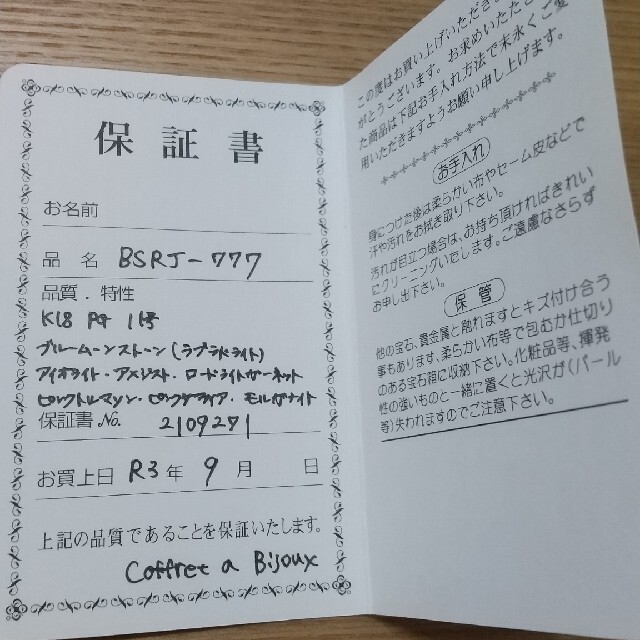 保証書
お名前
品 名 BSRJ-777
品質．特性
K18 PG 11号
ブルームーンストーン(ラブラドライト)
アイオライト・アメジスト・ロードライトガーネット
ピンクトルマリン・ピンクサファイア・モルガナイト
保証書No. 2109271
お買上日 R3年 9月 日
上記の品質であることを保証いたします。
Coffret a Bijoux
この度はお買い上げいただき
がとうございます。お求めいただ
た商品は下記お手入れ方法で末永くご愛
用いただきますようお願い申し上げます。
お手入れ
身につけた後は柔らかい布やセーム皮などで
汗や汚れをお拭き取り下さい。
汚れが目立つ場合は、お持ち頂ければきれい
にクリーニングいたします。ご遠慮なさらず
お申し出下さい。
保 管
他の宝石、貴金属と触れますとキズ付け合う
事もあります、柔らかい布等で包むか仕切り
のある宝石箱に収納下さい。化粧品等、揮発
性の強いものと一緒に置くと光沢が(パール
等)失われますのでご注意下さい。